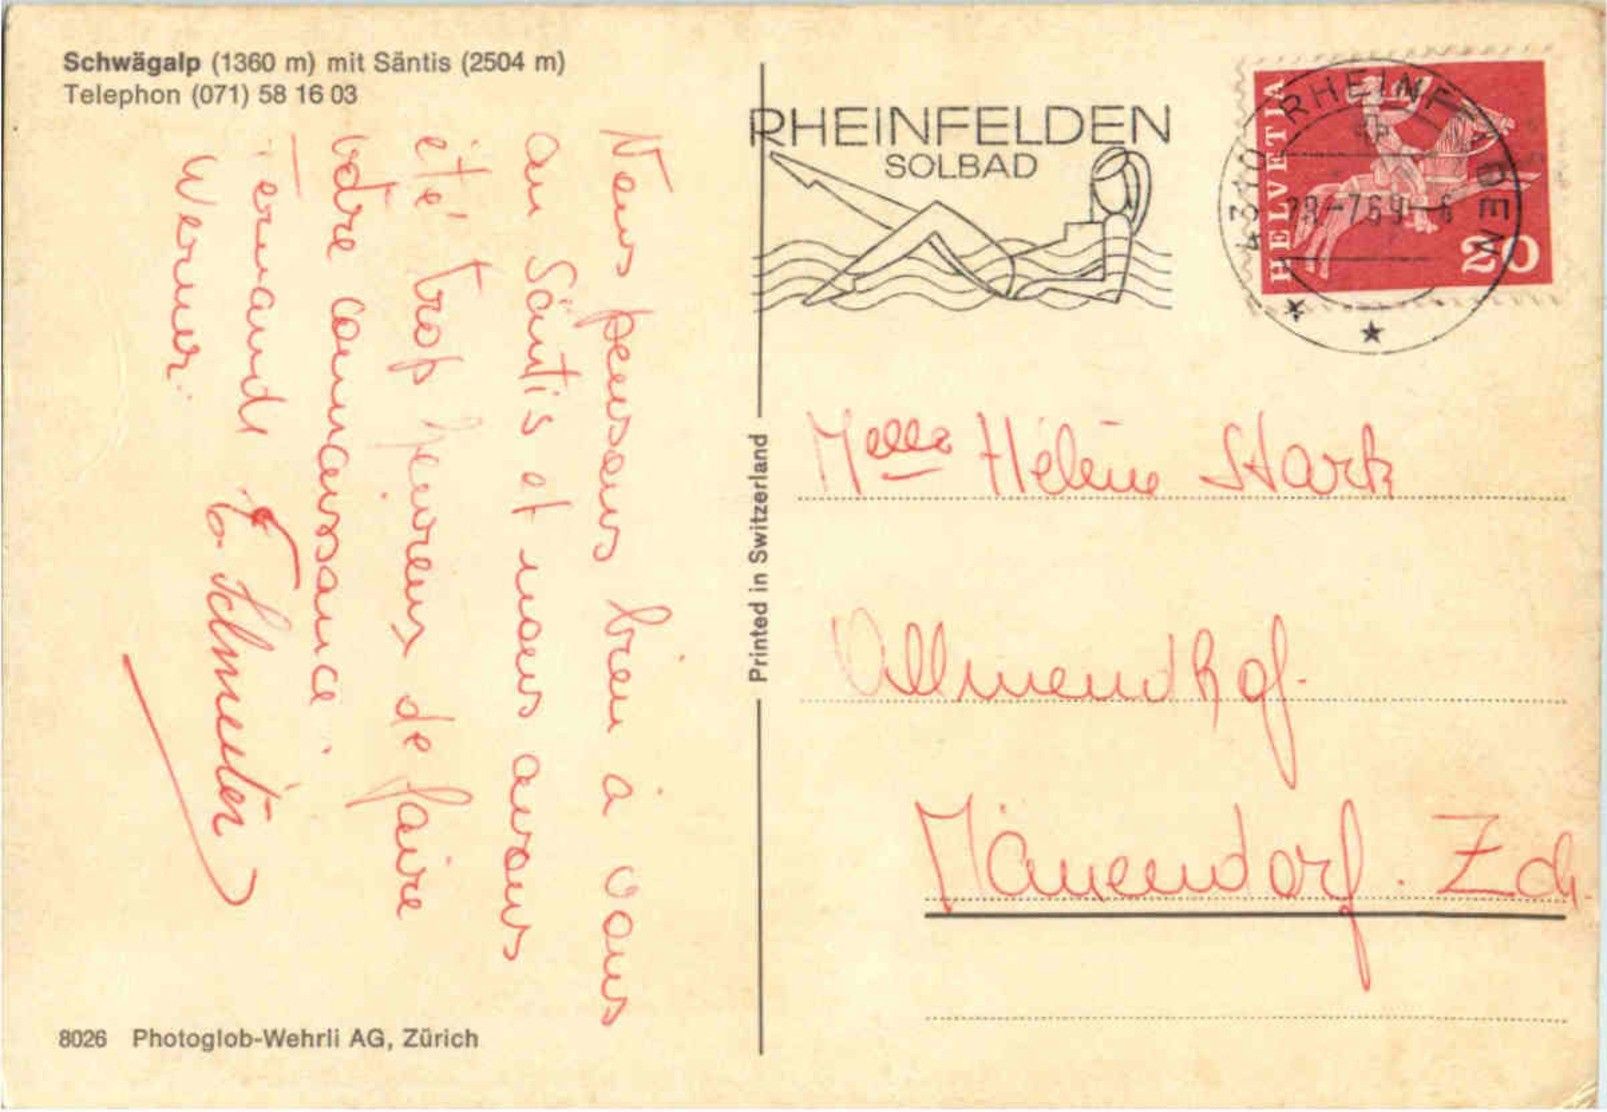 Schwägalp (1360 m) mit Säntis (2504 m)
Telephon (071) 58 16 03
Nous pensons bien à vous
au Säntis et nous avons
été trop heureux de faire
votre connaissance.
Fernande E. Schneider
Werner.
8026 Photoglob-Wehrli AG, Zürich
Printed in Switzerland
RHEINFELDEN
SOLBAD
4310 RHEINFELDEN
28-7.69-6
HELVETIA
20
Melle Hélène Stark
Allmendhof.
Mänendorf. Zch.